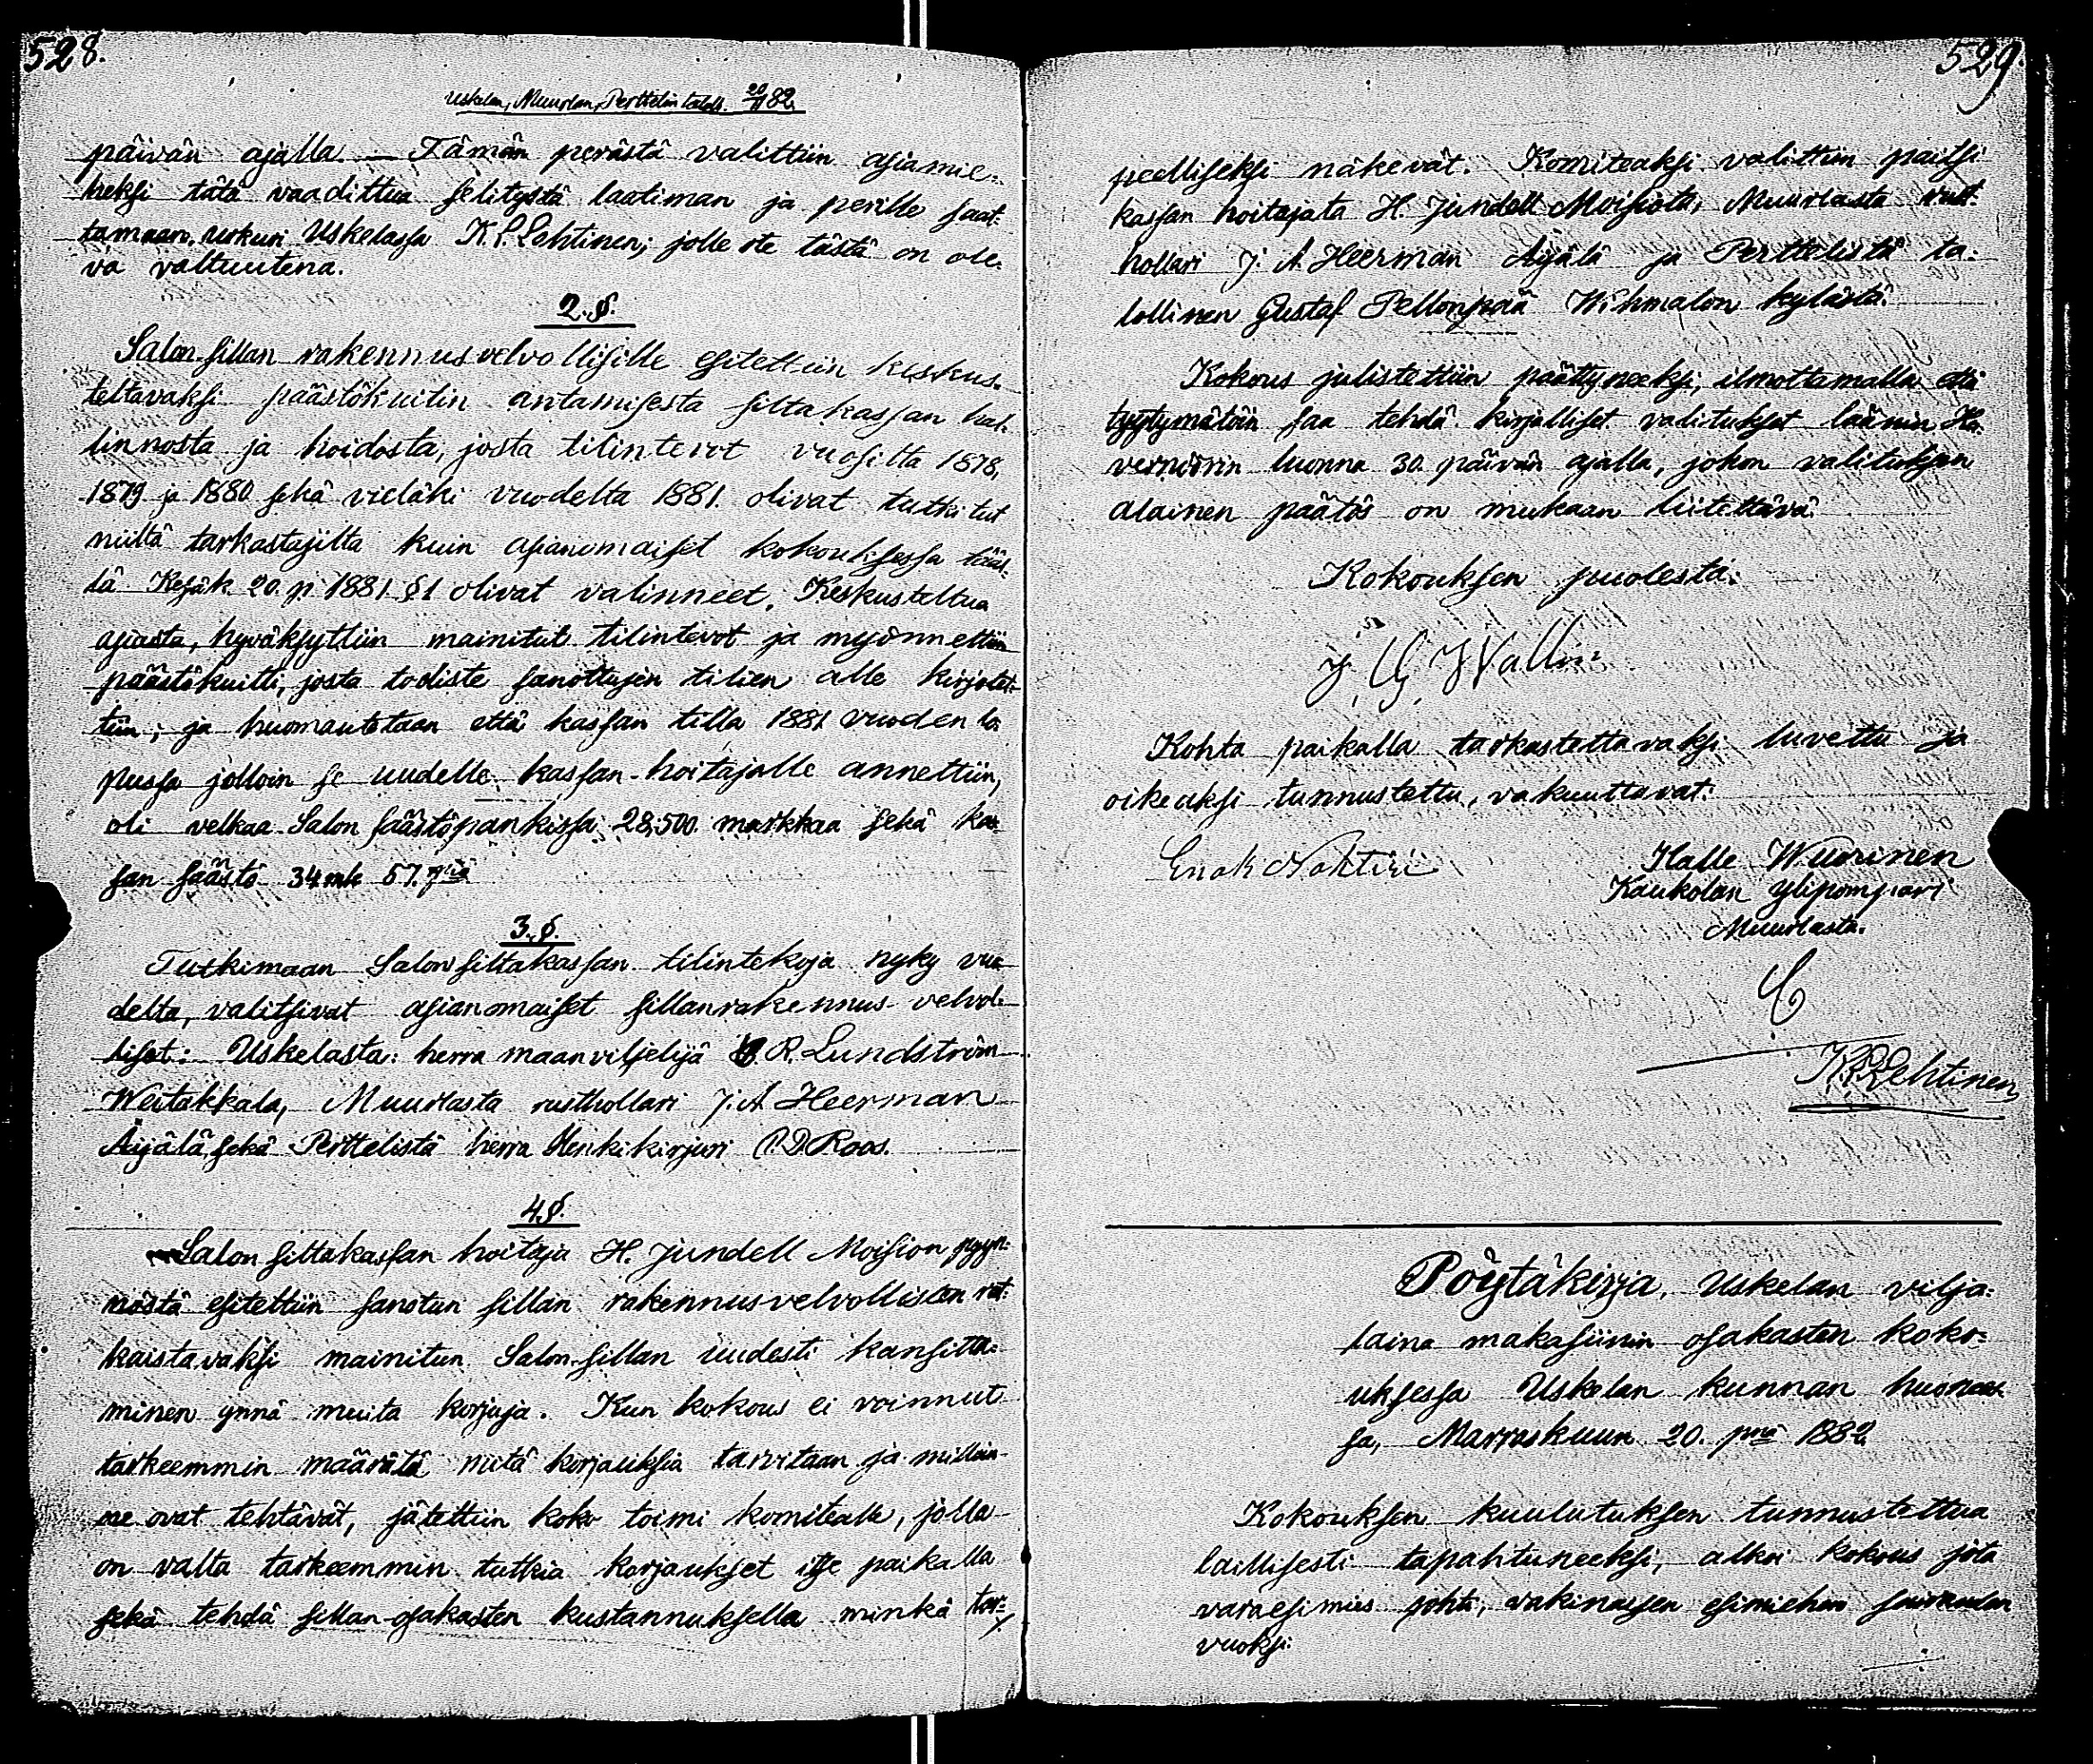 528.
Uskelan, Muurlan, Perttelin taloll. 20/11 82.
päivän ajalla. — Tämän perästä valittiin asiamie-
heksi tätä vaadittua selitystä laatiman ja perille saat-
tamaan, urkuri Uskelassa K. P. Lehtinen, jolle ote tästä on ole-
va valtuutena.
2. §.
Salon sillan rakennusvelvollisille esitettiin keskus-
teltavaksi päästökuitin antamisesta siltakassan hal-
linnosta ja hoidosta, josta tilinteot vuosilta 1878,
1879 ja 1880 sekä vieläki vuodelta 1881 olivat tutkitut
niiltä tarkastajilta kuin asianomaiset kokouksessa tääl-
lä Kesäk. 20. p. 1881 § 1 olivat valinneet. Keskusteltua
asiasta, hyväksyttiin mainitut tilinteot ja myönnettiin
päästökuitti, josta todiste sanottujen tilien alle kirjotet-
tiin; ja huomautetaan että kassan tilla 1881 vuoden lo-
pussa jolloin se uudelle kassan-hoitajalle annettiin,
oli velkaa Salon säästöpankissa 28,500 markkaa sekä kas-
san säästö 34 mk 57. piä
3. §.
Tutkimaan Salon siltakassan tilintekoja nyky vuo-
delta, valitsivat asianomaiset sillanrakennus velvol-
liset: Uskelasta: herra maanviljelijä R. Lundström
Weitakkala, Muurlasta rusthollari J. A Heerman
Äijälä, sekä Perttelistä herra Henkikirjuri P. D. Roos.
4 §.
Salon siltakassan hoitaja H. Jundell Moision pyyn-
nöstä esitettiin sanotun sillan rakennusvelvollisten rat-
kaistavaksi mainitun Salon sillan uudesti kansitta-
minen ynnä muita korjuja. Kun kokous ei voinnut
tarkeemmin määrätä mitä korjauksia tarvitaan ja milloin
ne ovat tehtävät, jätettiin koko toimi komitealle, jolla
on valta tarkeemmin tutkia korjaukset itse paikalla
sekä tehdä sillan-osakasten kustannuksella minkä tar-
529.
peelliseksi näkevät. Komiteaksi valittiin paitsi
kassan hoitajata H. Jundell Moisiota, Muurlasta rust-
hollari J. A. Heerman Äijälä ja Perttelistä ta-
lollinen Gustaf Pellonpää Wihmalon kylästä.
Kokous julistettiin päättyneeksi, ilmottamalla että
tyytymätöin saa tehdä kirjalliset valitukset läänin Ku-
vernöörin luonna 30 päivän ajalla, johon valituksen
alainen päätös on mukaan liitettävä.
Kokouksen puolesta:
J. G. Wallin
Kohta paikalla tarkastettavaksi luvettu ja
oikeaksi tunnustettu, vakuuttavat:
Enok Nohteri
Kalle Wuorinen
Kaukolan ylipompiari
Muurlasta.
K. P. Lehtinen
Pöytäkirja, Uskelan vilja-
laina makasiinin osakasten koko-
uksessa Uskelan kunnan huonees-
sa, Marraskuun 20. pnä 1882
Kokouksen kuulutuksen tunnustettua
laillisesti tapahtuneeksi, alkoi kokous jota
varaesimies johti, vakinaisen esimiehen sairauden
vuoksi.